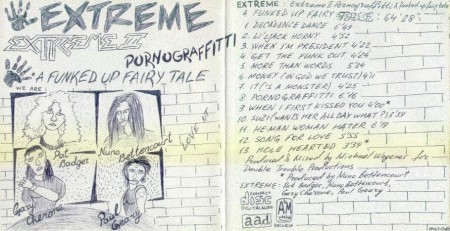 EXTREME
EXTREME II
PORNOGRAFFITTI
A FUNKED UP FAIRY TALE
WE ARE
LOVE IT
Pat Badger
Nuno Bettencourt
Gary Cherone
Paul Geary
EXTREME: Extreme II Pornograffitti, A funked up fairy tale
A FUNKED UP FAIRY 64'28"
1. DECADENCE DANCE 6'49
2. LI'L JACK HORNY 4'52
3. WHEN I'M PRESIDENT 4'22
4. GET THE FUNK OUT 4'24
5. MORE THAN WORDS 5'34
6. MONEY (IN GOD WE TRUST) 4'11
7. IT ('S A MONSTER) 4'25
8. PORNOGRAFFITTI 6'16
9. WHEN I FIRST KISSED YOU 4'00*
10. SUZI (WANTS HER ALL DAY WHAT?) 3'39
11. HE-MAN WOMAN HATER 6'19
12. SONG FOR LOVE 5'55
HOLE HEARTED 3'39*
Produced & Mixed by Michael Wagener for
Double Trouble Productions
* Produced by Nuno Bettencourt
EXTREME: Pat Badger, Nuno Bettencourt,
Gary Cherone, Paul Geary
COMPACT
disc
DIGITAL AUDIO
aad
A&M